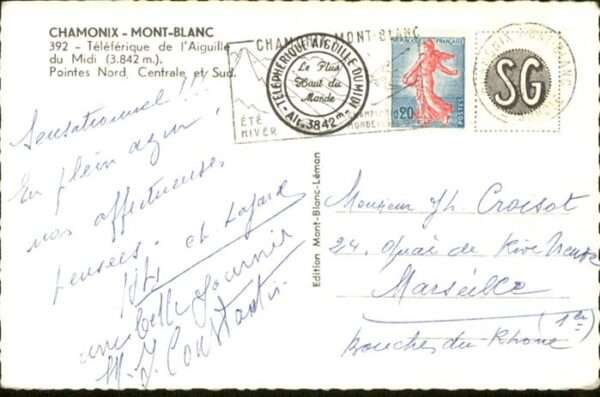 CHAMONIX - MONT-BLANC
392 - Téléférique de l'Aiguille
du Midi (3.842 m.).
Pointes Nord, Centrale et Sud.
CHAMONIX MONT-BLANC
ÉTÉ
HIVER
TÉLÉPHÉRIQUE AIGUILLE DU MIDI
Le Plus
Haut du
Monde
Alt. 3842 m
0,20
SG
Sensationnel !!!
En plein azur !
nos affectueuses
pensées.
une belle journée
M. J. Constantin.
Edition Mont-Blanc-Léman
Monsieur Jh. Croisot
24, Quai de Rive Neuve
Marseille
(1er)
Bouches-du-Rhône